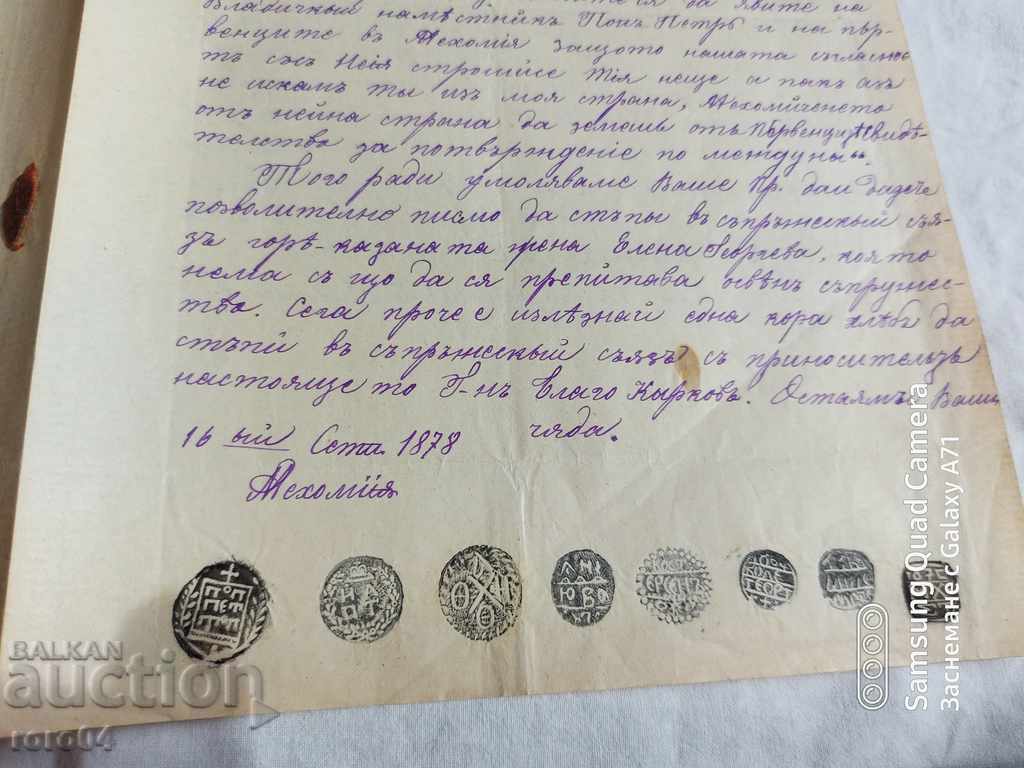 Владичный намѣстникъ Попъ Петръ и на пър-
венците въ Мехомія защото нашата съгласнос
тъ съсъ Неія стромисе тія неще а пакъ азъ
не искамъ ты изъ моя страна, Мехомійченето
отъ нейна страна да земешь отъ Първенците свидѣ-
телство за потвърждение по между ны".
Того ради умоляваме Ваше Пр. даи дадете
позволително писмо да стѫпы въ съпрѫжескый съю-
зъ горѣ-казаната жена Елена Георгиева, която
нема съ що да ся препитава освѣнъ съпружес-
тво. Сега проче е излѣзнай една кора хлѣбъ да
стѫпи въ съпрѫжескый съюзъ съ приносительтъ
настояще то Г-нъ Благо Кырковъ. Остаямъ Ваши
чяда.
16 ый Септ. 1878
Мехомія
ПОП
ПЕТ
BALKAN
auction
roro04
Samsung Quad Camera
Заснеманес Galaxy A71